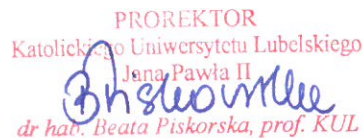 PROREKTOR
Katolickiego Uniwersytetu Lubelskiego
Jana Pawła II
dr hab. Beata Piskorska, prof. KUL